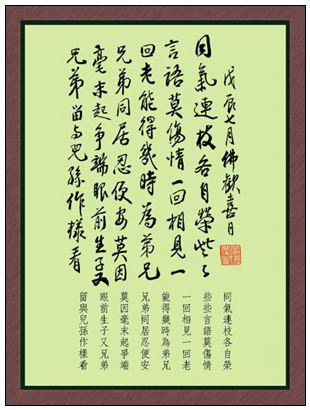 戊辰七月佛歡喜日
同氣連枝各自榮些々
言語莫傷情一回相見一
回老能得幾時為弟兄
兄弟同居忍便安莫因
毫末起爭端眼前生子又
兄弟留与兒孫作樣看
同氣連枝各自榮
些些言語莫傷情
一回相見一回老
能得幾時為弟兄
兄弟同居忍便安
莫因毫末起爭端
眼前生子又兄弟
留與兒孫作樣看